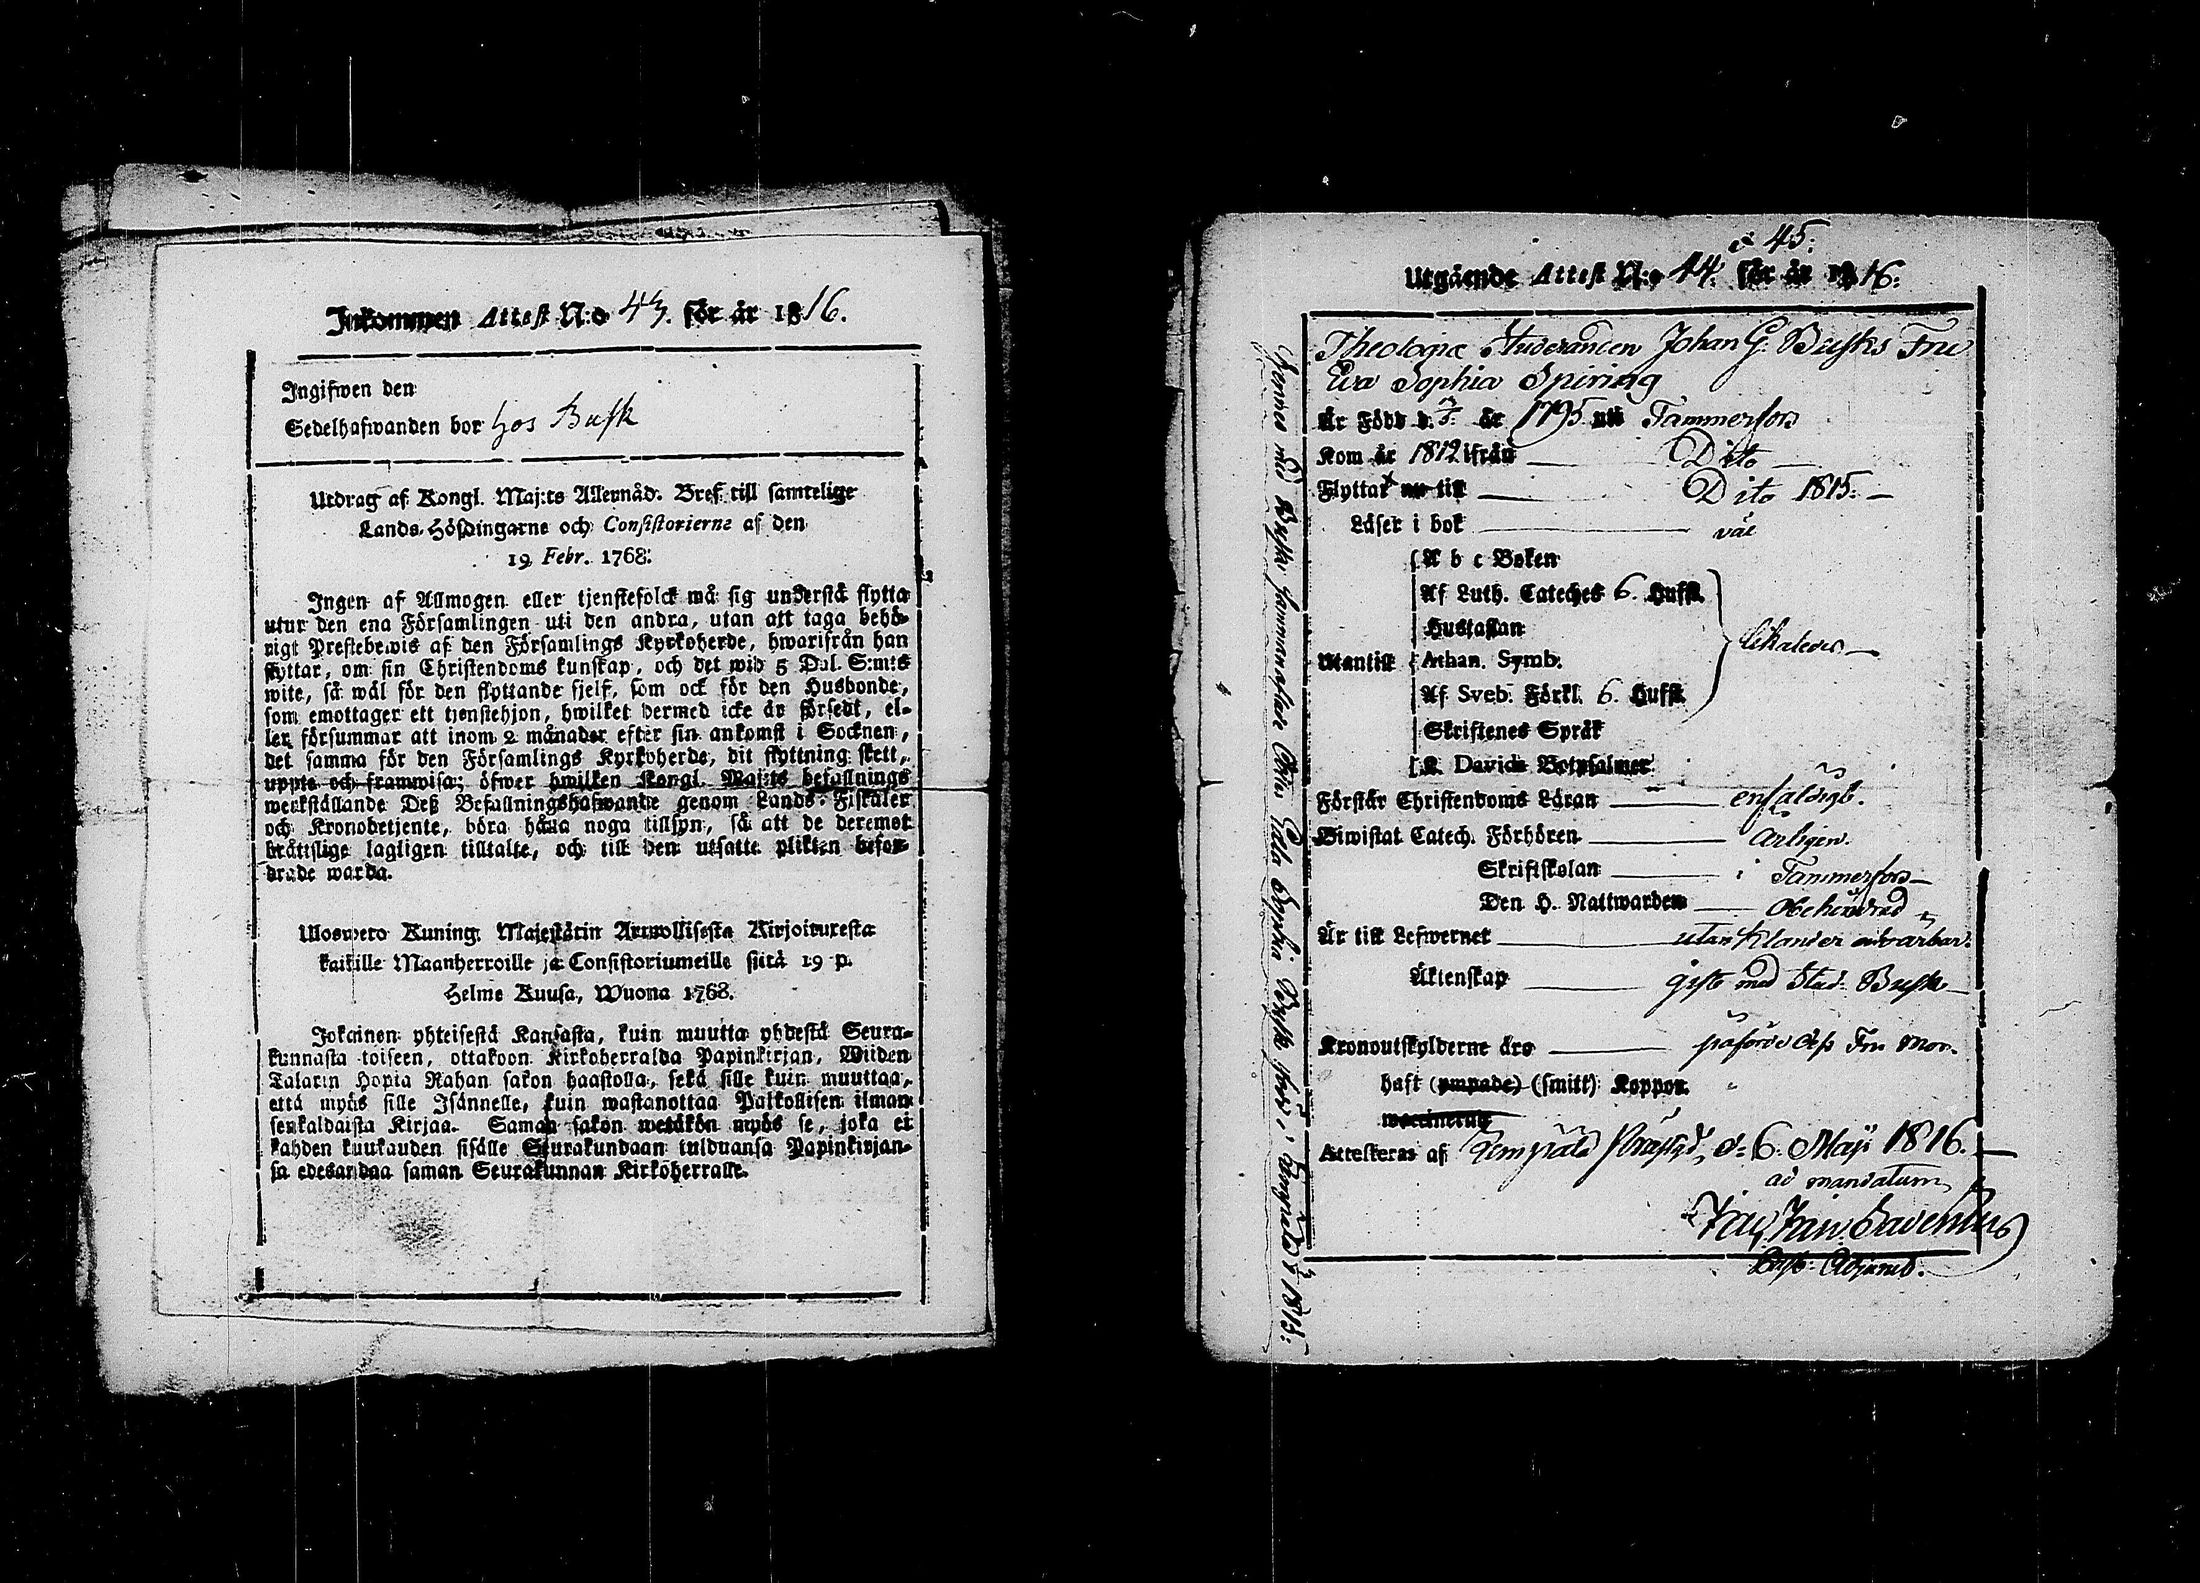 Inkommen Attest N:o 43. för år 1816.
Ingifwen den
Sedelhafwanden bor hos Busk
Utdrag af Kongl. Maj:ts Allernåd. Bref till samtelige
Lands-Höfdingarne och Consistorierne af den
19 Febr. 1768:
Ingen af Allmogen eller tjenstefolck må sig understå flytta
utur den ena Församlingen uti den andra, utan att taga behö-
rigt Prestebewis af den Församlings Kyrkoherde, hwarifrån han
flyttar, om sin Christendoms kunskap, och det wid 5 Dal. S:mts
wite, så wäl för den flyttande sjelf, som ock för den Husbonde,
som emottager ett tjenstehjon, hwilket dermed icke är försedt, el-
ler försummar att inom 2 månader efter sin ankomst i Socknen,
det samma för den Församlings Kyrkoherde, dit flyttning skett,
uppte och framwisa; öfwer hwilken Kongl. Maj:ts befallnings
werkställande Deß Befallningshafwande genom Lands-Fiskaler
och Kronobetjente, böra hålla noga tillsyn, så att de deremot
bråttslige lagligen tilltalte, och till den utsatte plikten befor-
drade warda.
Uloswero Kuning. Majestätin Armollisesta Kirjoituxesta
kaikille Maanherroille ja Consistoriumeille siitä 19 p.
Helme Kuusa, Wuona 1768.
Jokainen yhteisestä Kansasta, kuin muutta yhdestä Seura-
kunnasta toiseen, ottakoon Kirkoherralda Papinkirjan, Wiiden
Talarin Hopia Rahan sakon haastolla, sekä sille kuin muuttaa,
että myös sille Isännelle, kuin wastanottaa Palkollisen ilman
senkaldaista Kirjaa. Saman sakon wetäkön myös se, joka ei
kahden kuukauden sisälle Seurakundaan tulduansa Papinkirjan-
sa edesandaa saman Seurakunnan Kirkoherralle.
& 45.
Utgående Attest N:o 44. för år 1816.
Theologiæ Studeranden Johan G. Busks Fru
Eva Sophia Spiring
Är Född d. år 1795 uti Tammerfors
Kom år 1812 ifrån Dito
Flyttat nu till Dito 1815.
Läser i bok väl
A b c Boken
Af Luth. Cateches 6. Hufst.
Hustaflan
Utantill Athan. Symb. likaledes
Af Sveb. Förkl. 6. Hufst.
Skriftenes Språk
K. Davids Botpsalmer
Förstår Christendoms Läran enfaldigt.
Biwistat Catech. Förhören årligen.
Skriftskolan i Tammerfors
Den H. Nattwarden obehindrad
Är till Lefwernet utan klander
Äktenskap gift med Stud. Busk
Kronoutskylderne äro påförde Fru Mor.
haft (ympade) (smitt) Koppor.
vaccinerug
Attesteras af Prästgd, d. 6. Maji 1816.
ad mandatum
Past. Adjunct.